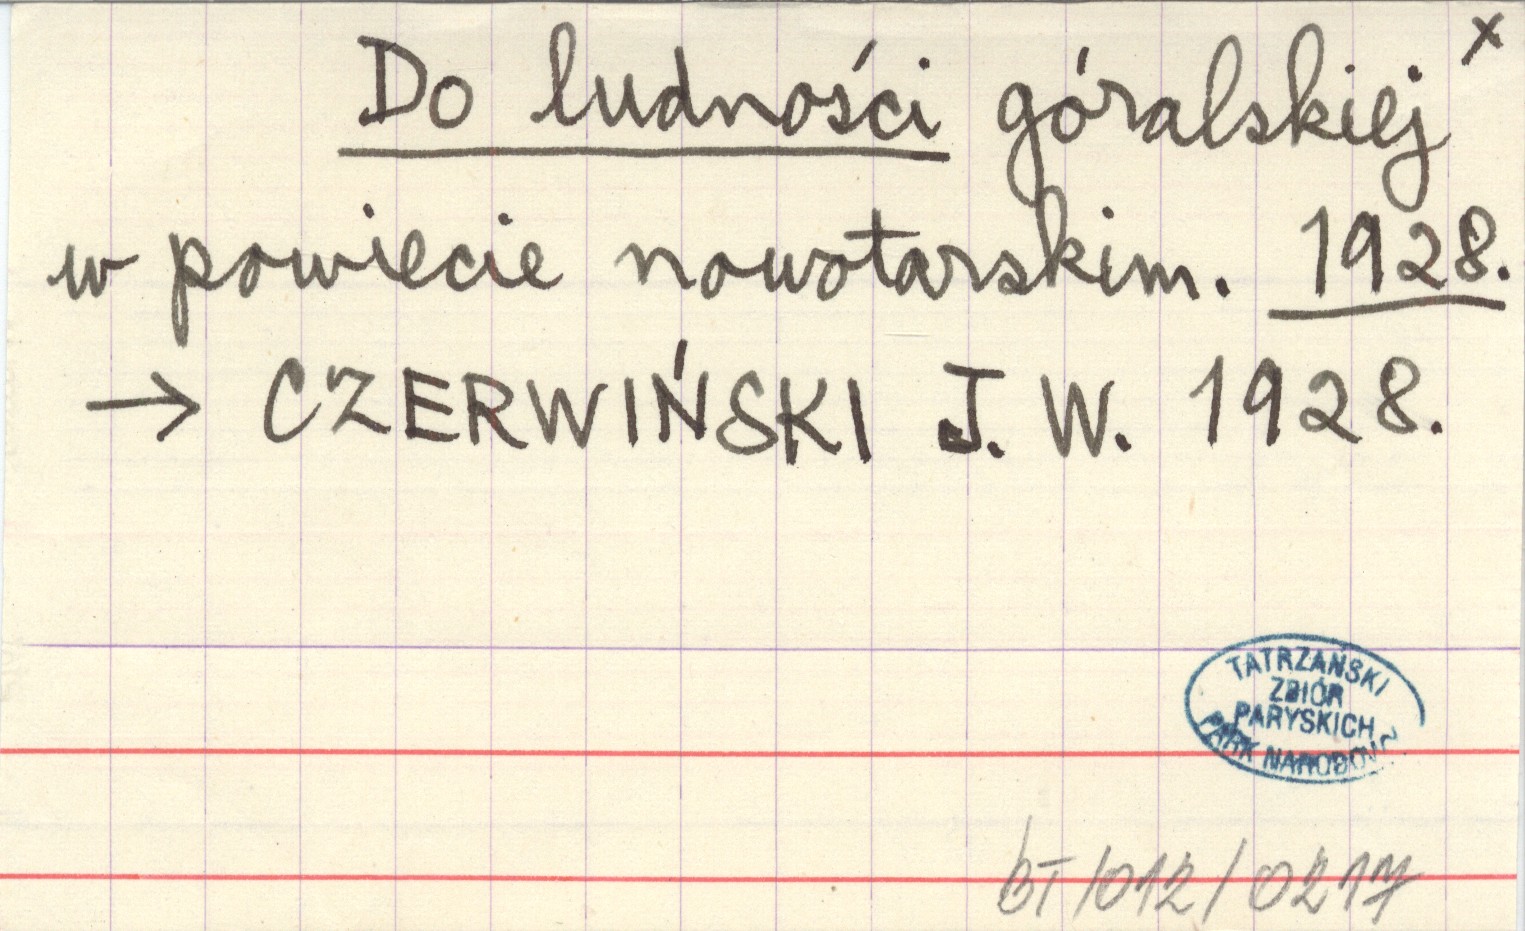 Do ludności góralskiej x
w powiecie nowotarskim. 1928.
→ CZERWIŃSKI J. W. 1928.
TATRZAŃSKI
ZBIÓR
PARYSKICH
PARK NARODOWY
bT/012/0217